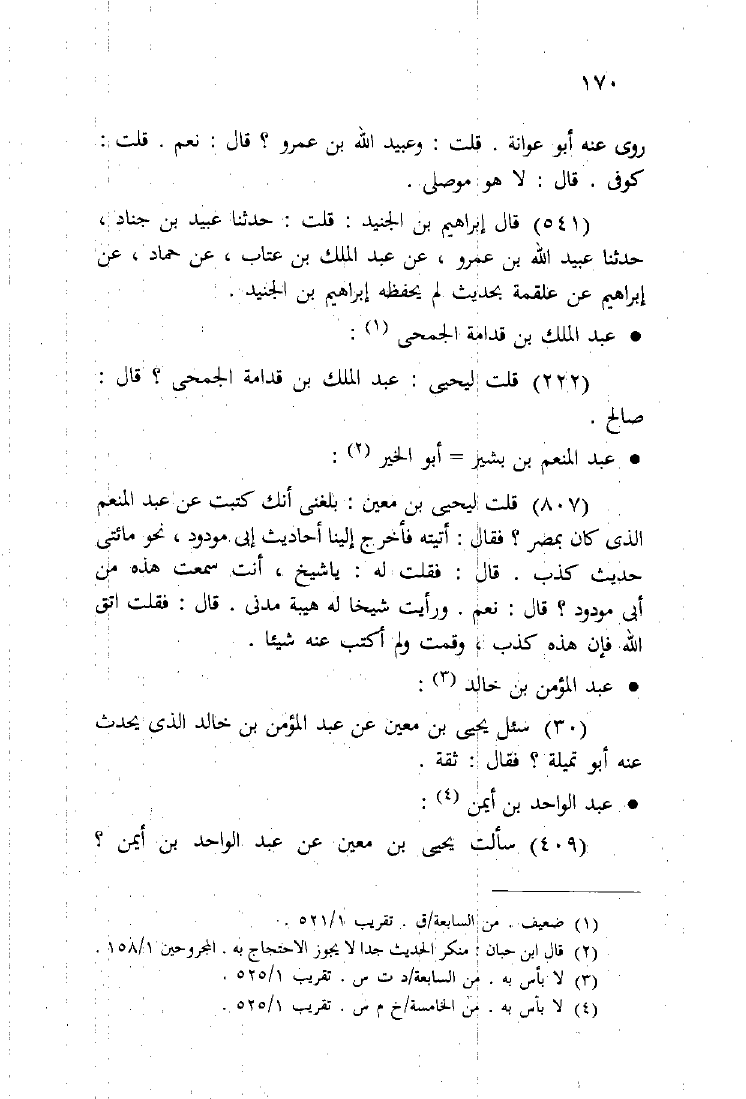 ١٧٠
روى عنه أبو عوانة . قلت : وعبيد الله بن عمرو ؟ قال : نعم . قلت :
كوفى . قال : لا هو موصلى .
(٥٤١) قال إبراهيم بن الجنيد : قلت : حدثنا عبيد بن جناد ،
حدثنا عبيد الله بن عمرو ، عن عبد الملك بن عتاب ، عن حماد ، عن
إبراهيم عن علقمة بحديث لم يحفظه إبراهيم بن الجنيد .
● عبد الملك بن قدامة الجمحى (١) :
(٢٢٢) قلت ليحيى : عبد الملك بن قدامة الجمحى ؟ قال :
صالح .
● عبد المنعم بن بشير = أبو الخير (٢) :
(٨٠٧) قلت ليحيى بن معين : بلغنى أنك كتبت عن عبد المنعم
الذى كان بمصر ؟ فقال : أتيته فأخرج إلينا أحاديث إبى مودود ، نحو مائتى
حديث كذب . قال : فقلت له : ياشيخ ، أنت سمعت هذه من
أبى مودود ؟ قال : نعم . ورأيت شيخا له هيبة مدنى . قال : فقلت اتق
الله فإن هذه كذب ، وقمت ولم أكتب عنه شيئا .
● عبد المؤمن بن خالد (٣) :
(٣٠) سئل يحيى بن معين عن عبد المؤمن بن خالد الذى يحدث
عنه أبو تميلة ؟ فقال : ثقة .
● عبد الواحد بن أيمن (٤) :
(٤٠٩) سألت يحيى بن معين عن عبد الواحد بن أيمن ؟
(١) ضعيف . من السابعة/ق . تقريب ٥٢١/١ .
(٢) قال ابن حبان : منكر الحديث جدا لا يجوز الاحتجاج به . المجروحين ١٥٨/١ .
(٣) لا بأس به . من السابعة/د ت س . تقريب ٥٢٥/١ .
(٤) لا بأس به . من الخامسة/خ م س . تقريب ٥٢٥/١ .